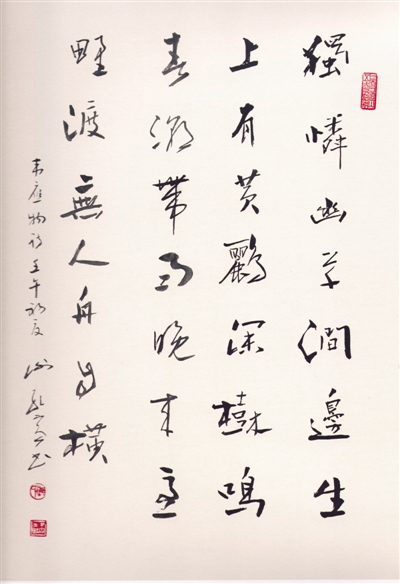 獨憐幽草澗邊生
上有黃鸝深樹鳴
春潮帶雨晚來急
野渡無人舟自橫
韋應物詩 壬午初夏 書